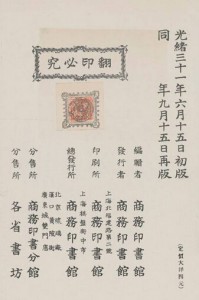 光緒三十一年六月十五日初版
同年九月十五日再版
翻印必究
編輯者 商務印書館
發行者 商務印書館
上海北福建路第二號
印刷所 商務印書館
上海棋盤街中市
總發行所 商務印書館
北京琉璃廠
漢口黃陂街
廣東城雙門底
分售所 商務印書分館
分售所 各省書坊